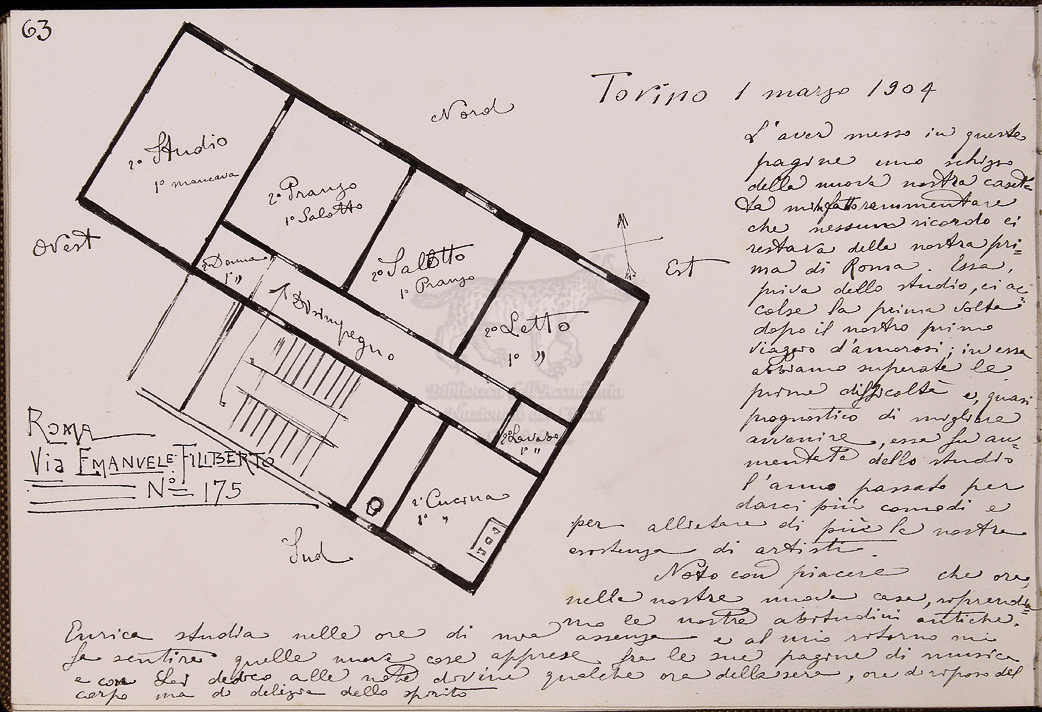 63
Torino 1 marzo 1904
Nord
Ovest
Est
Sud
2º Studio
1º mancava
2º Pranzo
1º Salotto
2º Salotto
1º Pranzo
2º Letto
1º "
2º Donna
1º "
Disimpegno
2º Lavabo
1º "
2º Cucina
1º "
ROMA
Via EMANUELE FILIBERTO
Nº 175
L'aver messo in queste
pagine uno schizzo
della nuova nostra caset-
ta mi fatto rammentare
che nessun ricordo ci
restava della nostra pri-
ma di Roma. Essa,
priva dello studio, ci ac-
colse la prima volta
dopo il nostro primo
viaggio d'amorosi; in essa
abbiamo superate le
prime difficoltà e, quasi
prognostico di migliore
avvenire, essa fu au-
mentata dello studio
l'anno passato per
darci più comodi e
per allietare di più la nostra
esistenza di artisti.
Noto con piacere che ora,
nella nostra nuova casa, riprendia-
mo le nostre abitudini antiche.
Enrica studia nelle ore di mia assenza e al mio ritorno mi
fa sentire quelle nuove cose apprese fra le sue pagine di musica
e con Lei dedico alle note divine qualche ora della sera, ore di riposo del
corpo ma di delizia dello spirito